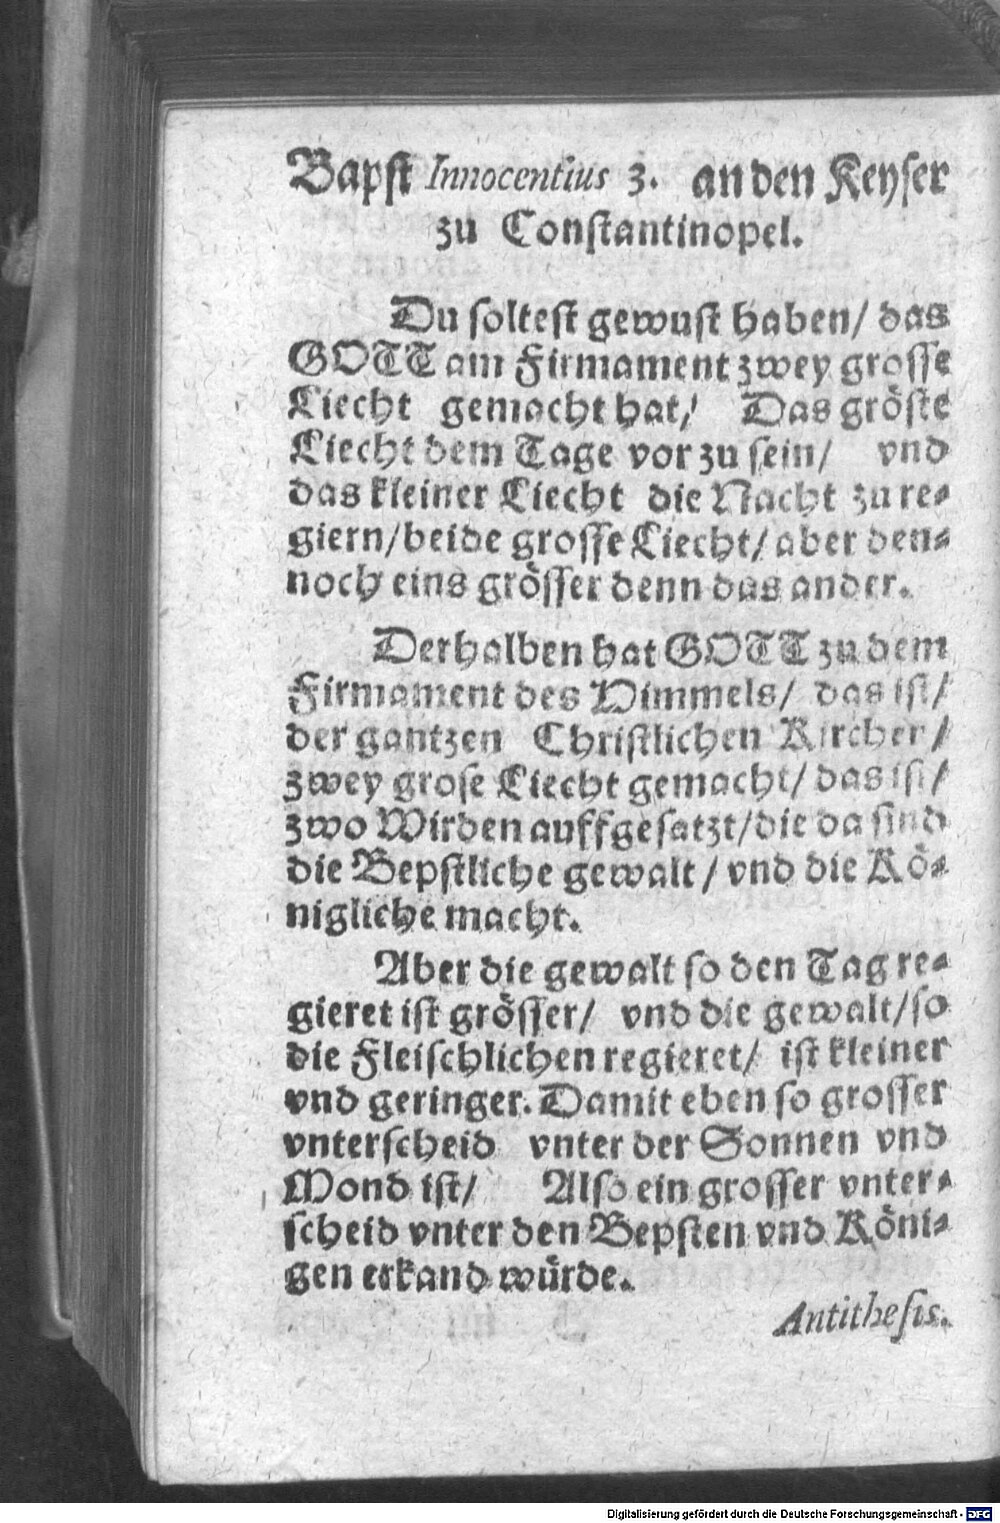 Bapst Innocentius 3. an den Keyser
zu Constantinopel.
Du soltest gewust haben/ das
GOTT am Firmament zwey grosse
Liecht gemacht hat/ Das gröste
Liecht dem Tage vor zu sein/ vnd
das kleiner Liecht die Nacht zu re-
giern/beide grosse Liecht/aber den-
noch eins grösser denn das ander.
Derhalben hat GOTT zu dem
Firmament des Himmels/ das ist/
der gantzen Christlichen Kirchen/
zwey grose Liecht gemacht/ das ist/
zwo Wirden auffgesatzt/die da sind
die Bepstliche gewalt/ vnd die Kö-
nigliche macht.
Aber die gewalt so den Tag re-
gieret ist grösser/ vnd die gewalt/so
die Fleischlichen regieret/ ist kleiner
vnd geringer. Damit eben so grosser
vnterscheid vnter der Sonnen vnd
Mond ist/ Also ein grosser vnter-
scheid vnter den Bepsten vnd Köni-
gen erkand würde.
Antithesis.
Digitalisierung gefördert durch die Deutsche Forschungsgemeinschaft - DFG